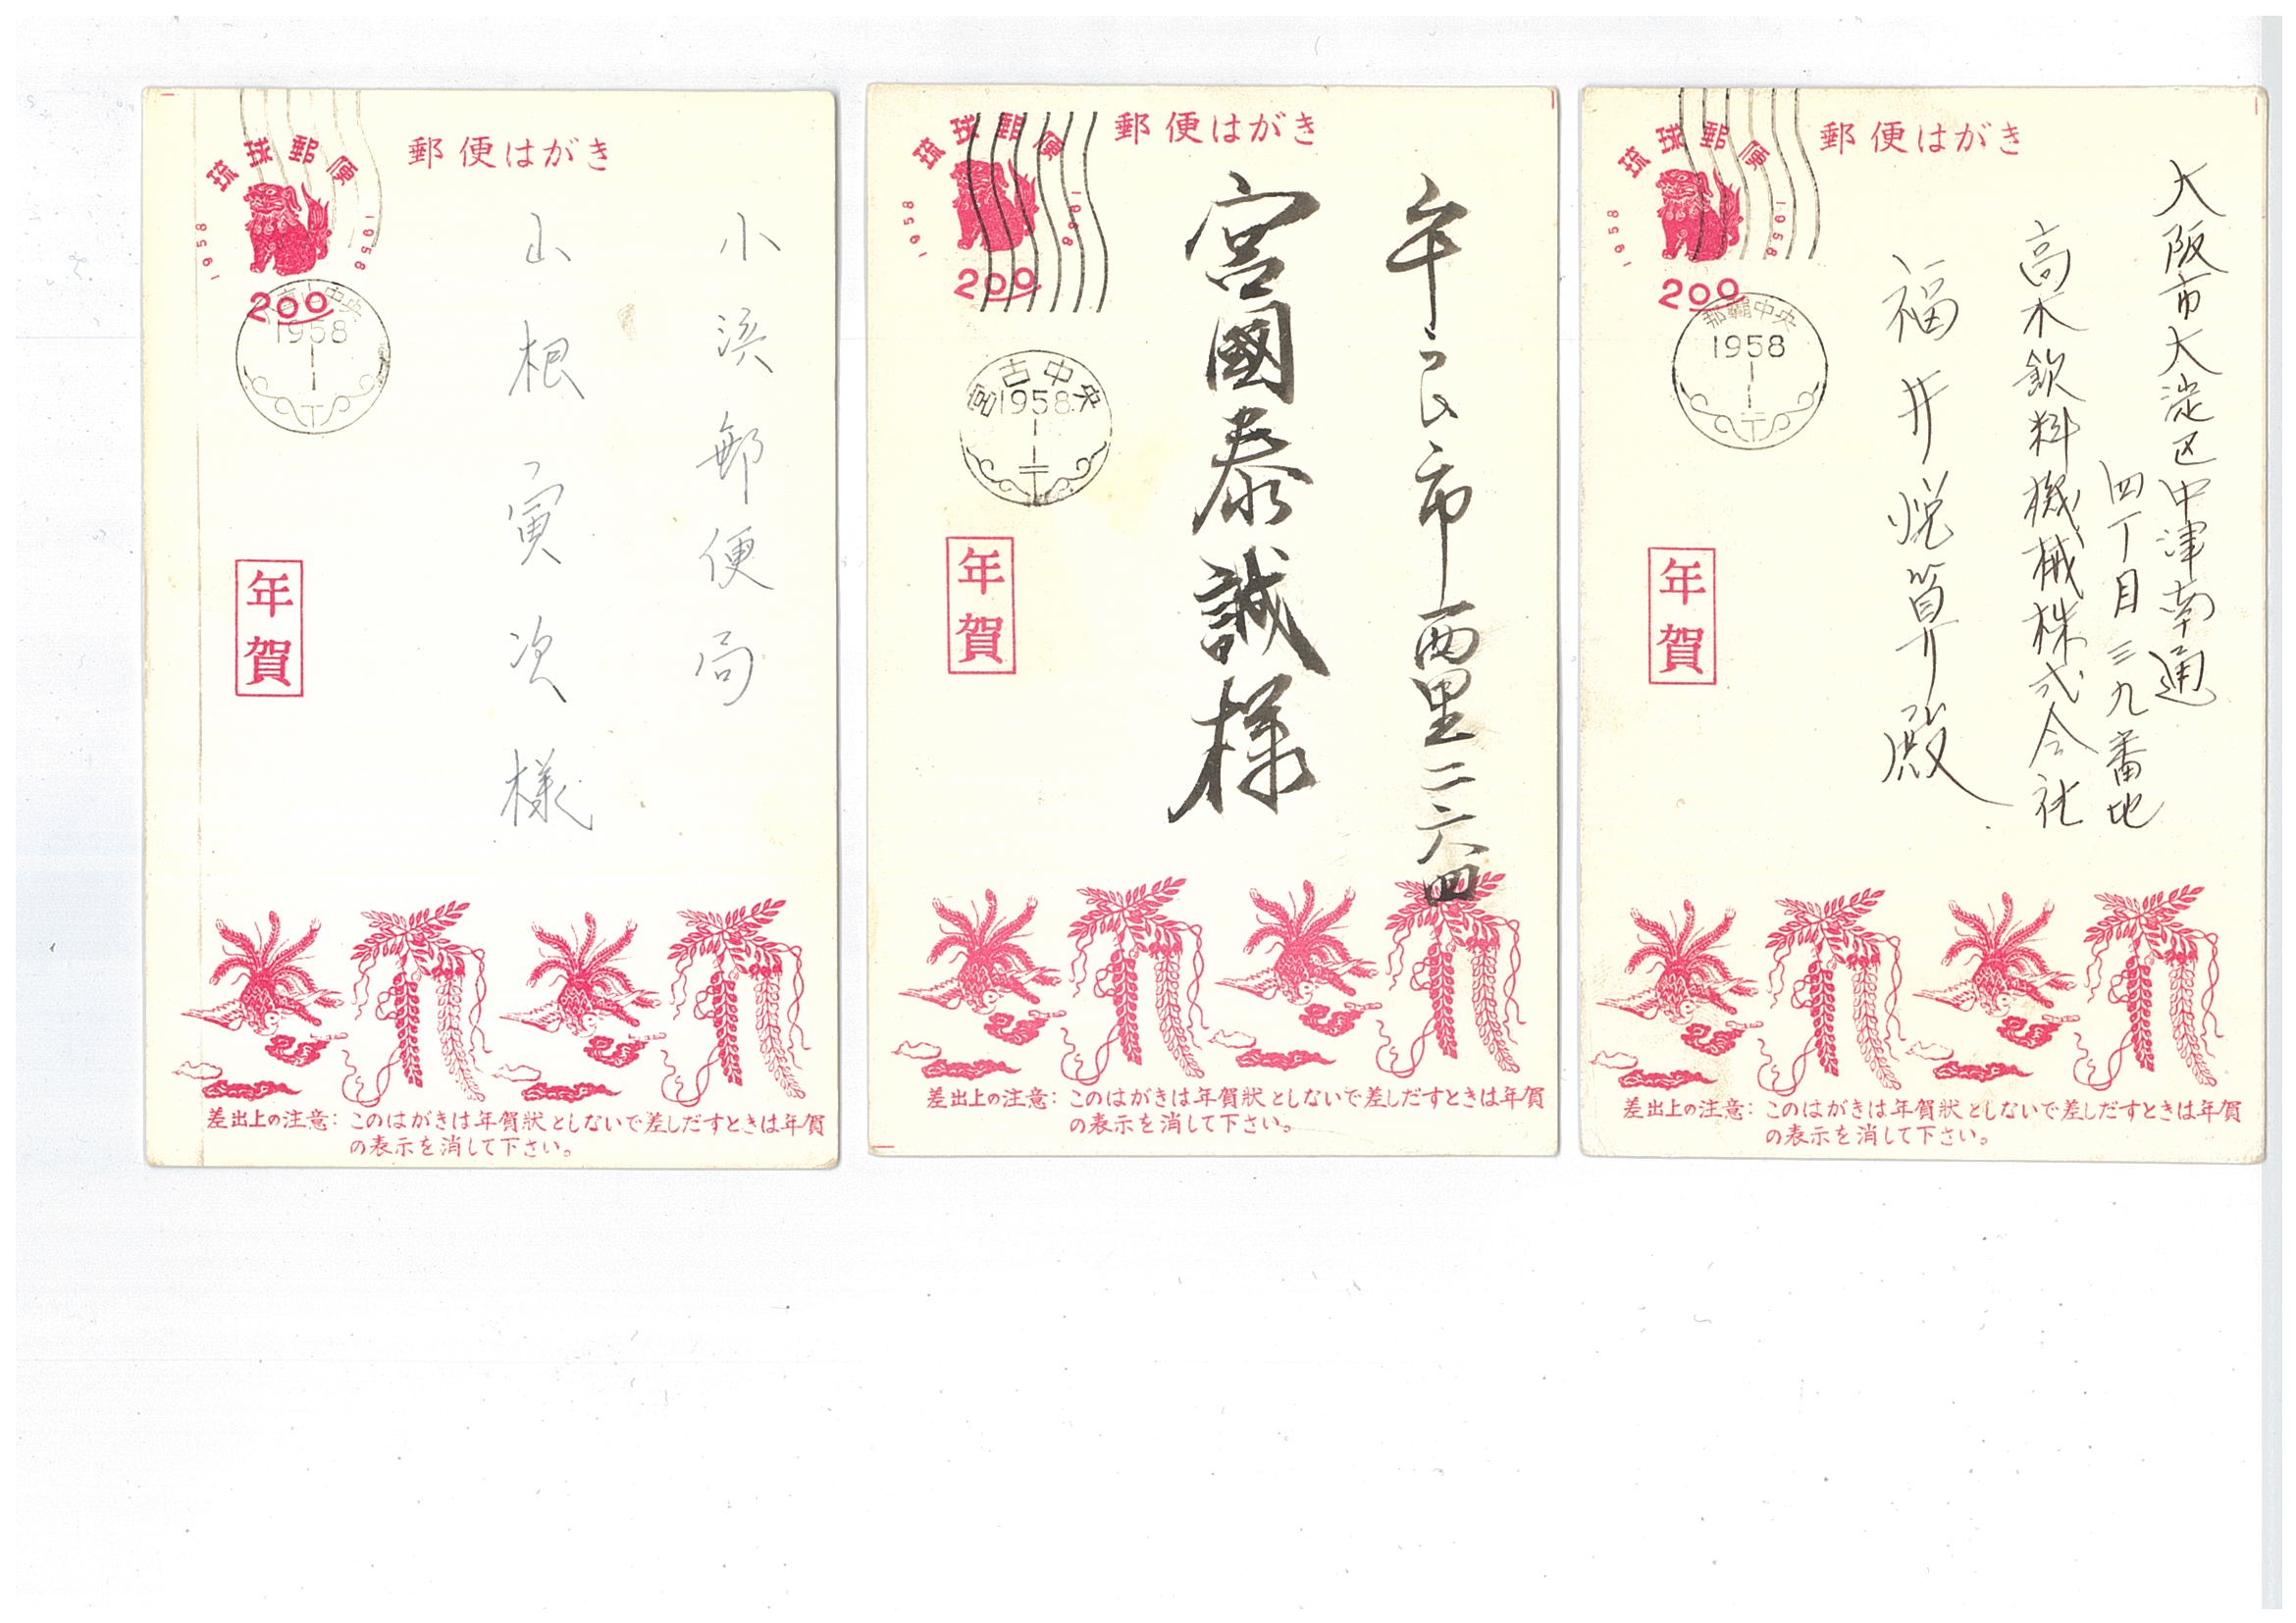 郵便はがき
琉球郵便
1958
1958
200
中央
1958
1
1
小浜郵便局
山根寅次様
年賀
差出上の注意：このはがきは年賀状としないで差しだすときは年賀
の表示を消して下さい。
郵便はがき
琉球郵便
1958
1958
200
宮古中央
1958
1
1
平良市西里二六四
宮國泰誠様
年賀
差出上の注意：このはがきは年賀状としないで差しだすときは年賀
の表示を消して下さい。
郵便はがき
琉球郵便
1958
1958
200
那覇中央
1958
1
1
大阪市大淀区中津南通
四丁目三九番地
高木飲料機械株式会社
福井悦算殿
年賀
差出上の注意：このはがきは年賀状としないで差しだすときは年賀
の表示を消して下さい。